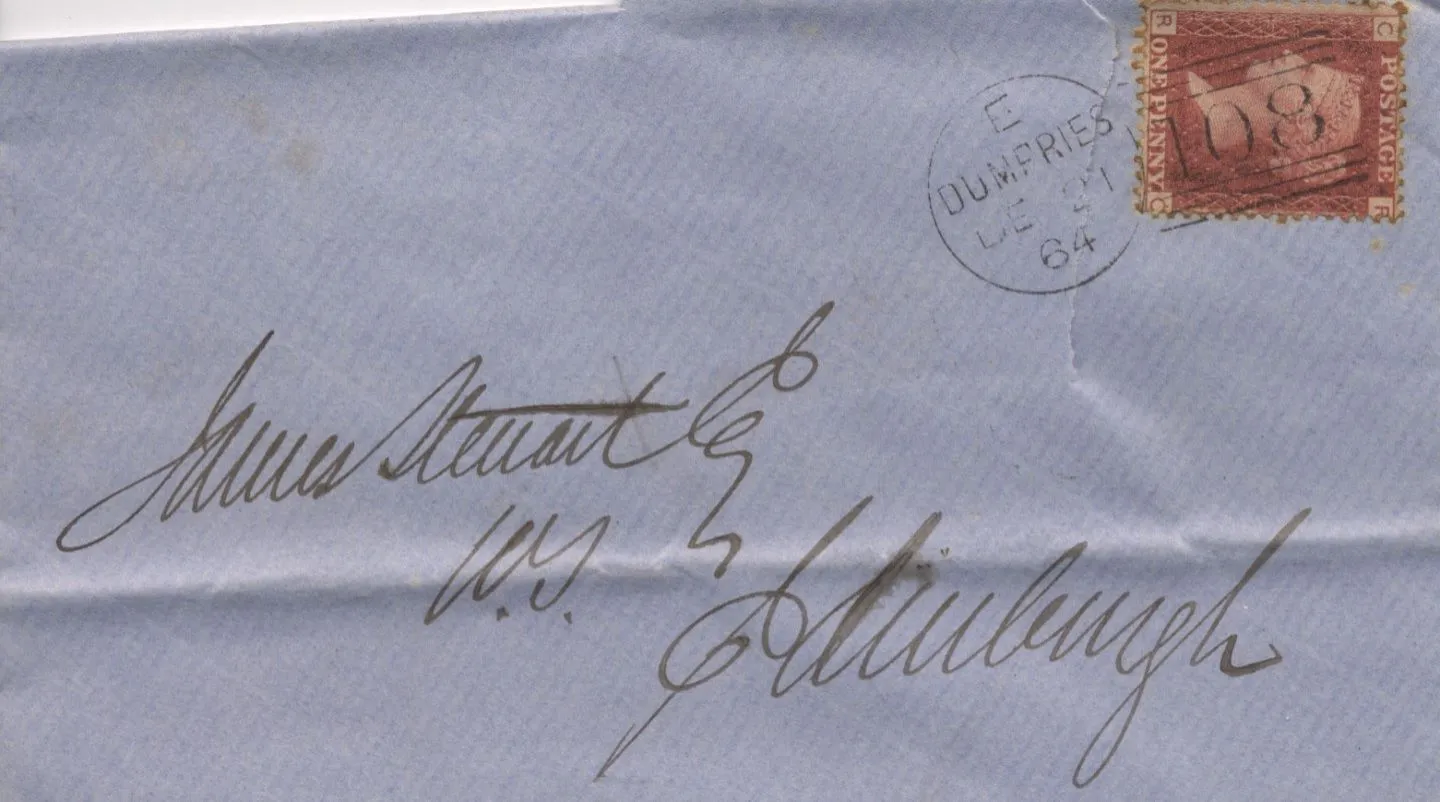 E
DUMFRIES
DE 21
64
108
R C
ONE PENNY
POSTAGE
C R
James Steuart Esq
W.S.
Edinburgh